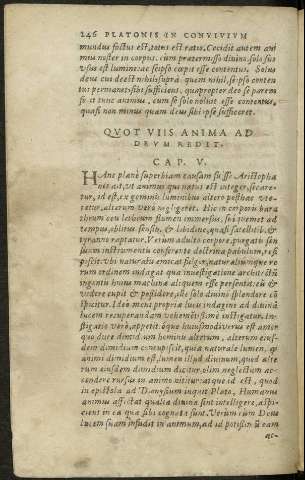 246 PLATONIS IN CONVIVIUM
mundus factus est, totus est ratio. Cecidit autem ani
mus noster in corpus. cum prætermisso divino, solo suo
usus est lumine: ac seipso cœpit esse contentus. Solus
deus cui deest nihil: supra quem nihil, se ipso conten
tus permanet: sibi sufficiens. quapropter deo se parem
fecit tunc animus, cum se solo voluit esse contentus,
quasi non minus quam deus sibi ipse sufficeret.
QVOT VIIS ANIMA AD
DEVM REDIT.
CAP. V.
HAnc planè superbiam causam fuisse Aristopha
nes ait, ut animus qui natus est integer, secare
tur, id est, ex geminis luminibus altero posthac ute
retur, alterum verò negligeret. Hic in corporis bara
thrum ceu letheum flumen immersus, sui ipsemet ad
tempus, oblitus sensib. & libidine, quasi satellitib. &
tyranno raptatur. Verum adulto corpore, purgatis sen
suum instrumentis conferente doctrina pabulum, resi
piscit. ubi naturalis emicat fulgor, naturaliumque re
rum ordinem indagat qua investigatione architectum
ingentis huius machinæ aliquem esse persentit, eumque &
videre cupit & possidere, ille solo divino splendore con
spicitur. Ideo mens propria luce indagine ad divinum
lucem recuperandam vehementissimè instigatur. In
stigatio verò, appetitusque huiusmodi verus est amor
quo duce dimidium hominis alterum, alterum eius
dem dimidium concupiscit, quia naturale lumen, quod
animi dimidium est, lumen illud divinum, quod alte
rum eiusdem dimidium dicitur, olim neglectum ac
cendere rursus in animo nititur: atque id est, quod
in epistola ad Dionysium inquit Plato, Humanus
animus affectat qualia divina sint intelligere, aspi
ciens in ea quæ sibi cognata sunt. Verum cum Deus
lucem suam infudit in animum, ad id potissimum eam
ac-